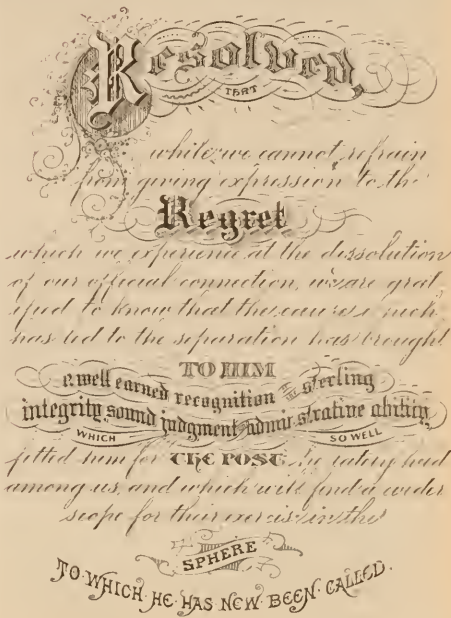 Resolved,
THAT
while we cannot refrain
from giving expression to the
Regret
which we experience at the dissolution
of our official connection, we are grat
ified to know that the cause which
has led to the separation has brought
TO HIM
a well earned recognition OF HIS sterling
integrity, sound judgment AND administrative ability,
WHICH SO WELL
fitted him for THE POST he lately held
among us, and which will find a wider
scope for their exercise in the
SPHERE
TO WHICH HE HAS NEW BEEN CALLED.